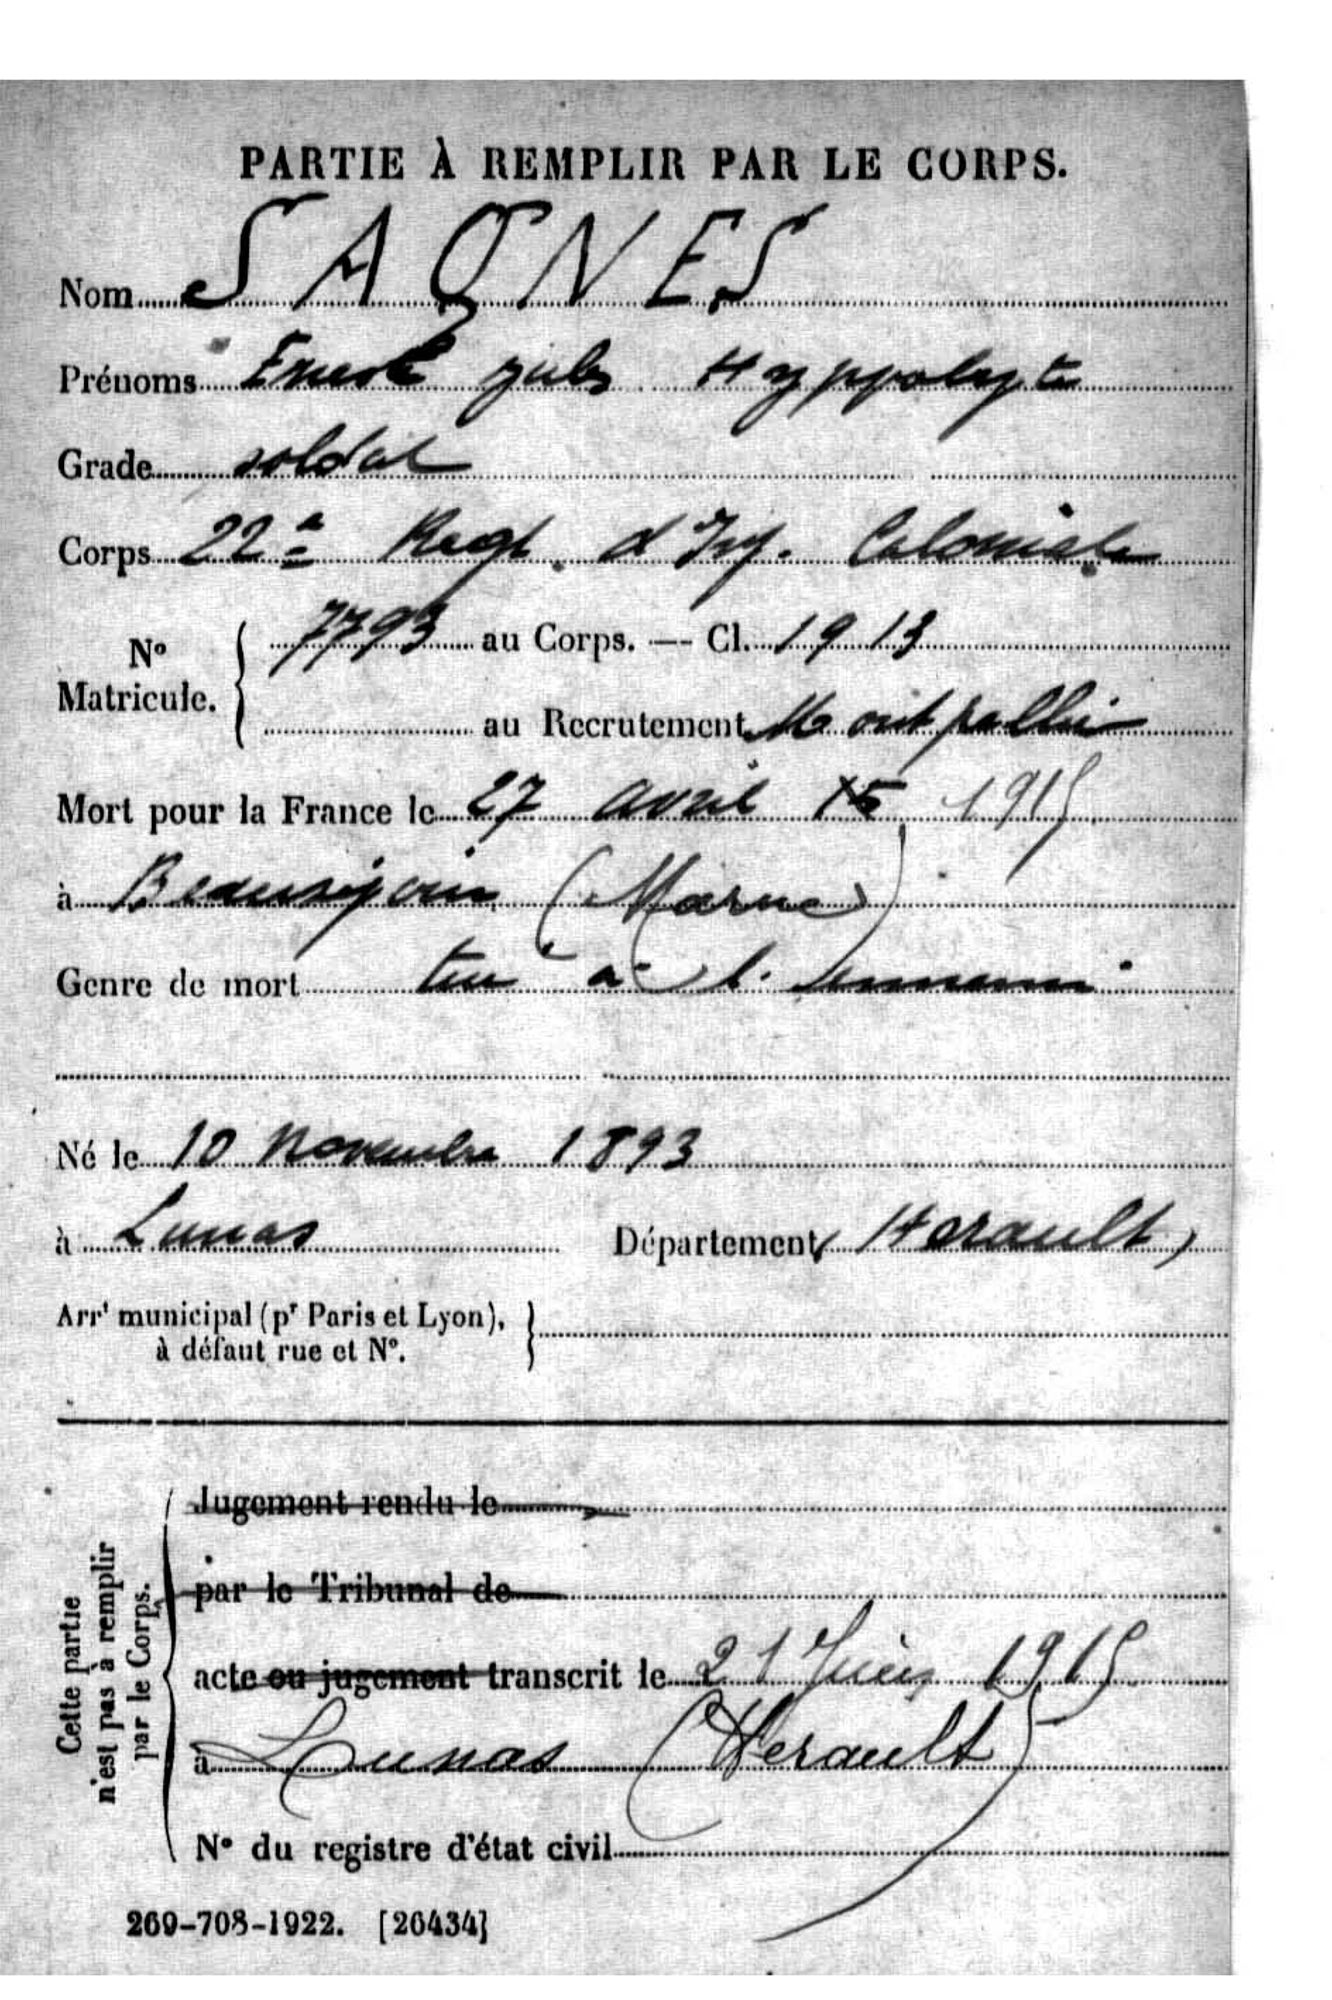 PARTIE À REMPLIR PAR LE CORPS.
Nom SAGNES
Prénoms Ernest jules Hyppolyte
Grade soldat
Corps 22e Regt d'Inf. Coloniale
N° Matricule. 7793 au Corps. — Cl. 1913
au Recrutement Montpellier
Mort pour la France le 27 avril 15 1915
à Beauséjour (Marne)
Genre de mort tué à l'ennemi
Né le 10 Novembre 1893
à Lunas Département (Herault)
Arrt municipal (pr Paris et Lyon),
à défaut rue et N°.
Cette partie
n'est pas à remplir
par le Corps.
Jugement rendu le
par le Tribunal de
acte ou jugement transcrit le 21 Juin 1915
à Lunas (Herault)
N° du registre d'état civil
269-708-1922. [26434]